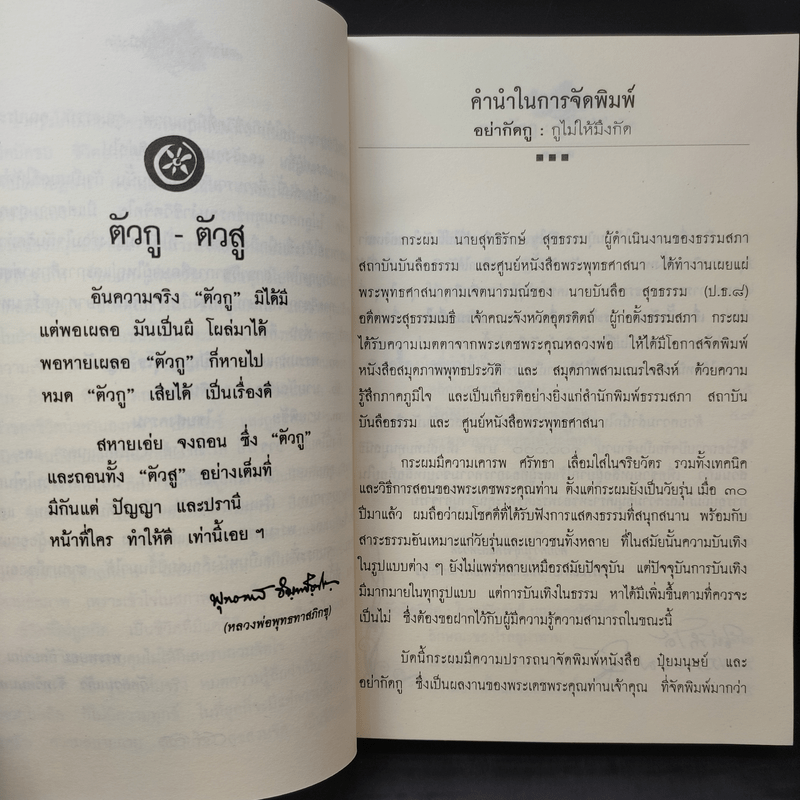 ตัวกู - ตัวสู
อันความจริง “ตัวกู” มิได้มี
แต่พอเผลอ มันเป็นผี โผล่มาได้
พอหายเผลอ “ตัวกู” ก็หายไป
หมด “ตัวกู” เสียได้ เป็นเรื่องดี
สหายเอ่ย จงถอน ซึ่ง “ตัวกู”
และถอนทั้ง “ตัวสู” อย่างเต็มที่
มีกันแต่ ปัญญา และปรานี
หน้าที่ใคร ทำให้ดี เท่านี้เอย ฯ
(หลวงพ่อพุทธทาสภิกขุ)
คำนำในการจัดพิมพ์
อย่ากัดกู : กูไม่ให้มึงกัด
กระผม นายสุทธิรักษ์ สุขธรรม ผู้ดำเนินงานของธรรมสภา
สถาบันบันลือธรรม และศูนย์หนังสือพระพุทธศาสนา ได้ทำงานเผยแผ่
พระพุทธศาสนาตามเจตนารมณ์ของ นายบันลือ สุขธรรม (ป.ธ.๘)
อดีตพระสุธรรมเมธี เจ้าคณะจังหวัดอุตรดิตถ์ ผู้ก่อตั้งธรรมสภา กระผม
ได้รับความเมตตาจากพระเดชพระคุณหลวงพ่อ ให้ได้มีโอกาสจัดพิมพ์
หนังสือสมุดภาพพุทธประวัติ และ สมุดภาพสามเณรใจสิงห์ ด้วยความ
รู้สึกภาคภูมิใจ และเป็นเกียรติอย่างยิ่งแก่สำนักพิมพ์ธรรมสภา สถาบัน
บันลือธรรม และ ศูนย์หนังสือพระพุทธศาสนา
กระผมมีความเคารพ ศรัทธา เลื่อมใสในจริยวัตร รวมทั้งเทคนิค
และวิธีการสอนของพระเดชพระคุณท่าน ตั้งแต่กระผมยังเป็นวัยรุ่น เมื่อ ๓๐
ปีมาแล้ว ผมถือว่าผมโชคดีที่ได้รับฟังการแสดงธรรมที่สนุกสนาน พร้อมกับ
สาระธรรมอันเหมาะแก่วัยรุ่นและเยาวชนทั้งหลาย ที่ในสมัยนั้นความบันเทิง
ในรูปแบบต่าง ๆ ยังไม่แพร่หลายเหมือรสมัยปัจจุบัน แต่ปัจจุบันการบันเทิง
มีมากมายในทุกรูปแบบ แต่การบันเทิงในธรรม หาได้มีเพิ่มขึ้นตามที่ควรจะ
เป็นไม่ ซึ่งต้องขอฝากไว้กับผู้มีความรู้ความสามารถในขณะนี้
บัดนี้กระผมมีความปรารถนาจัดพิมพ์หนังสือ ปุ๋ยมนุษย์ และ
อย่ากัดกู ซึ่งเป็นผลงานของพระเดชพระคุณท่านเจ้าคุณ ที่จัดพิมพ์มากว่า